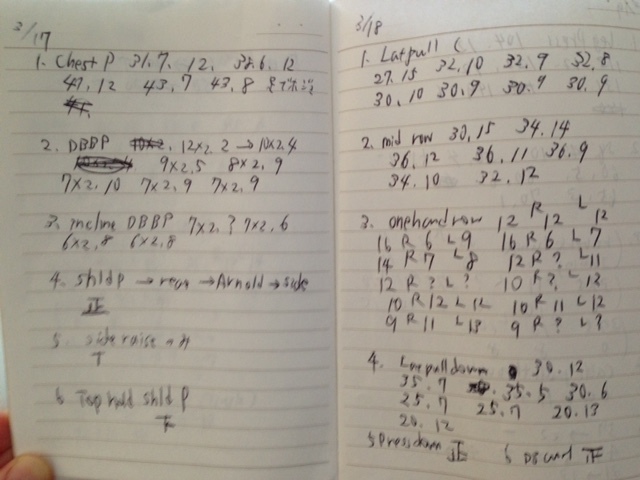 3/17
1. Chest P 31.7, 12, 38.6, 12
47, 12 43, 7 43, 8
2. DBBP 12×2 2 → 10×2, 4
9×2, 5 8×2, 9
7×2, 10 7×2, 9 7×2, 9
3. incline DBBP 7×2, ? 7×2, 6
6×2, 8 6×2, 8
4. shld P → rear → Arnold → side
正
5. side raise
T
6 Top hold shld P
下
3/18
1. Lat pull
27.15 32.10 32.9 32.8
30.10 30.9 30.9 30.9
2. mid row 30.15 34.14
36.12 36.11 36.9
34.10 32.12
3. one hand row 12 R 12 L 12
16 R 6 L 9 16 R 6 L 7
14 R 7 L 8 12 R ? L 11
12 R ? L ? 10 R ? L 13
10 R 12 L 12 10 R 11 L 12
9 R 11 L 13 9 R ? L ?
4. Lat pull down 30.12
35.7 35.5 30.6
25.7 25.7 20.13
20.12
5 Press down 正 6 DB curl 正